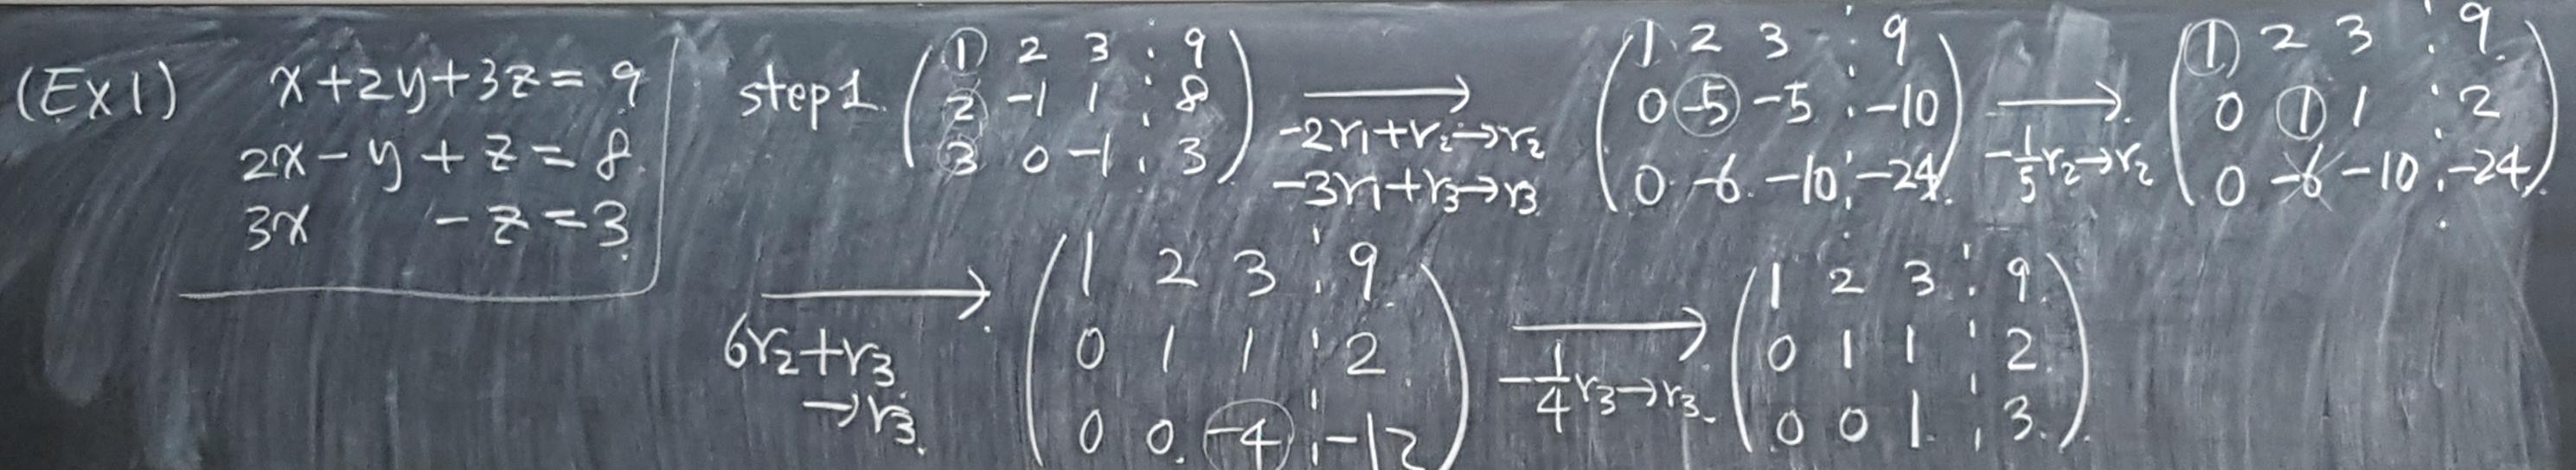 (Ex1) x+2y+3z=9
2x-y+z=8
3x -z=3
step1. (1 2 3 : 9
2 -1 1 : 8
3 0 -1 : 3)
→
-2r₁+r₂→r₂
-3r₁+r₃→r₃
(1 2 3 : 9
0 -5 -5 : -10
0 -6 -10 : -24)
→
-1/5 r₂→r₂
(1 2 3 : 9
0 1 1 : 2
0 -6 -10 : -24)
→
6r₂+r₃
→r₃
(1 2 3 : 9
0 1 1 : 2
0 0 -4 : -12)
→
-1/4 r₃→r₃
(1 2 3 : 9
0 1 1 : 2
0 0 1 : 3)